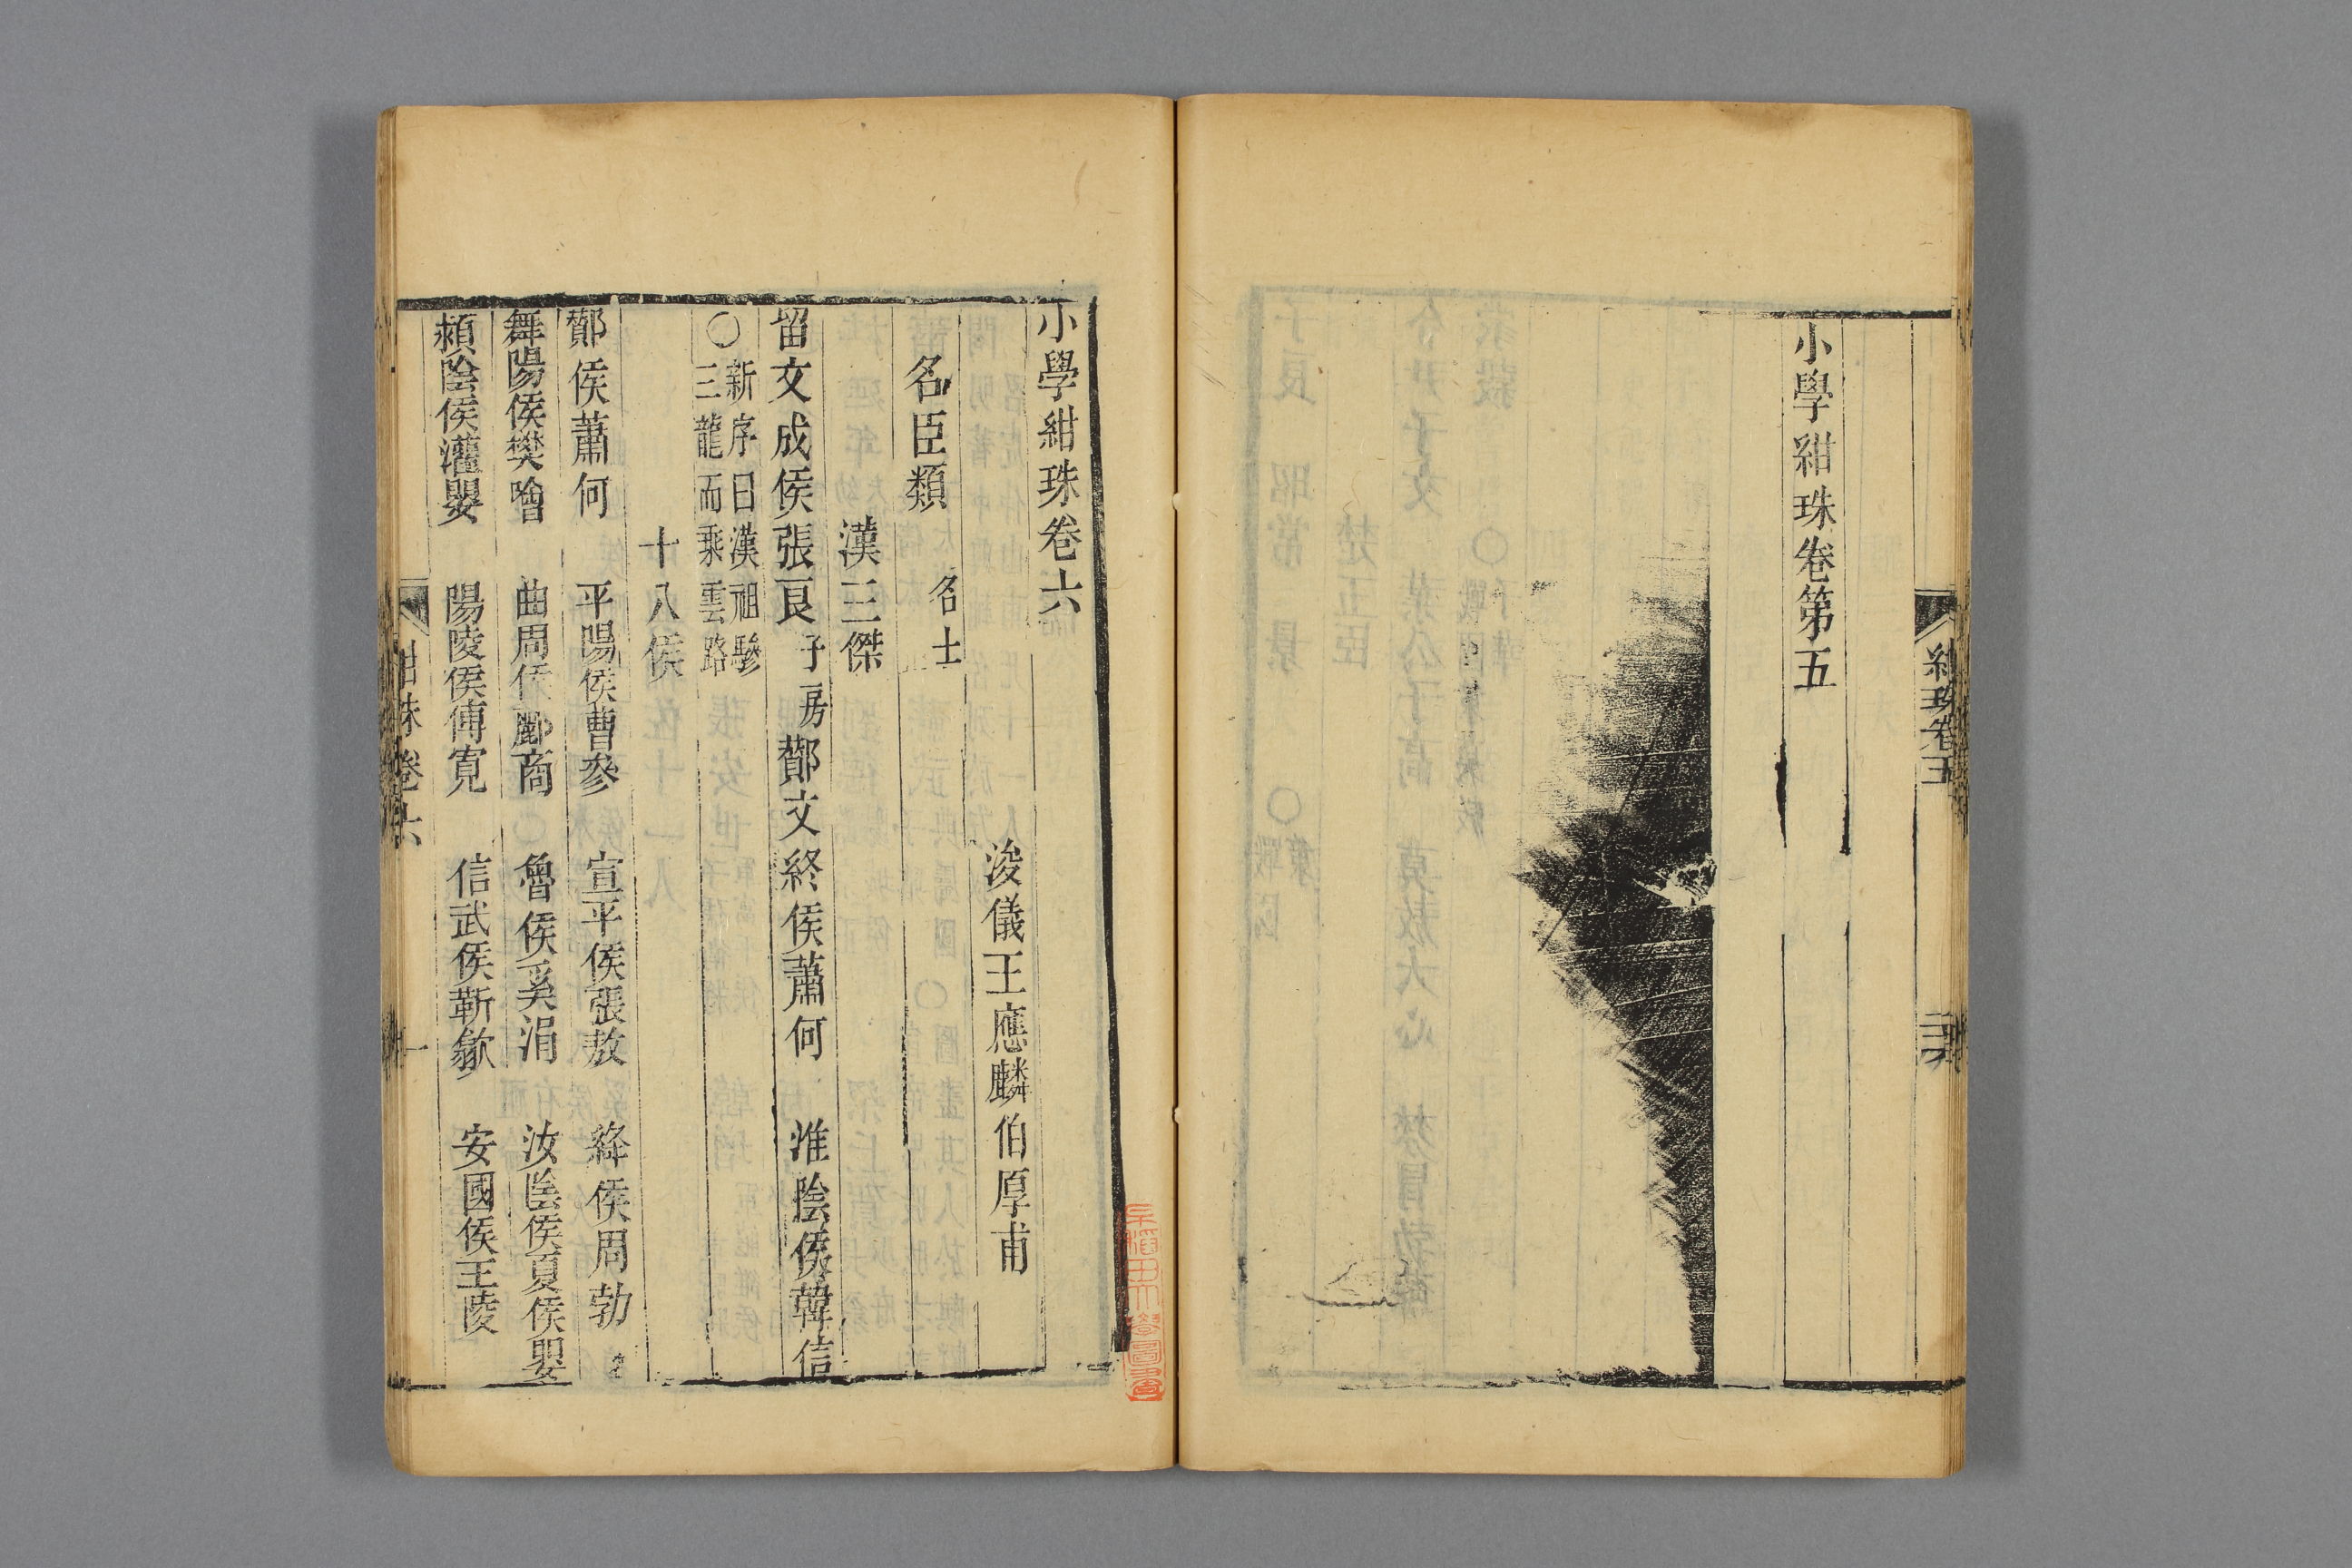 小學紺珠卷第五
小學紺珠卷六
浚儀王應麟伯厚甫
名臣類 名士
漢三傑
留文成侯張良子房 酇文終侯蕭何 淮陰侯韓信
○新序曰漢祖驂
三龍而乘雲路
十八侯
酇侯蕭何 平陽侯曹參 宣平侯張敖 絳侯周勃
舞陽侯樊噲 曲周侯酈商 魯侯奚涓 汝陰侯夏侯嬰
潁陰侯灌嬰 陽陵侯傅寬 信武侯靳歙 安國侯王陵
紺珠卷六 一